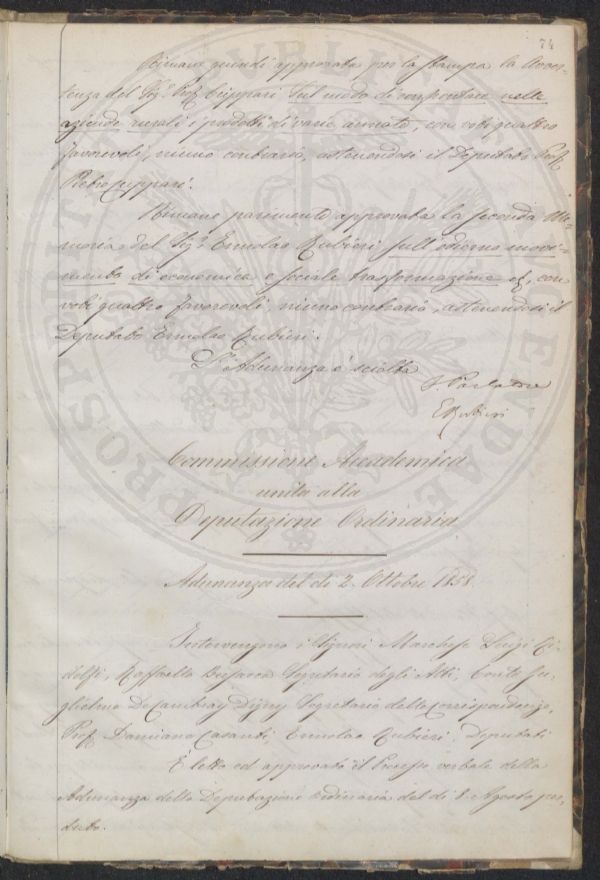 74
Rimane quindi approvata per la stampa la Avver-
tenza del Sig. Prof. Cuppari. Sul modo di confrontare nelle
aziende rurali i prodotti di varie annate, con voti quattro
favorevoli, niuno contrario, astenendosi il Deputato Prof.
Pietro Cuppari.
Rimane parimente approvata la seconda Me-
moria del Sig. Ermolao Rubieri sull'odierno movi-
mento di economica e sociale trasformazione ec, con
voti quattro favorevoli, niuno contrario, astenendosi il
Deputato Ermolao Rubieri.
L'Adunanza è sciolta
E Rubieri
Commissione Accademica
unita alla
Deputazione Ordinaria
Adunanza del dì 2. Ottobre 1858
Intervengono i Signori Marchese Luigi Ri-
dolfi, Raffaello Busacca Segretario degli Atti, Conte Gu-
glielmo De Cambray Digny Segretario delle Corrispondenze,
Prof. Damiano Casanti, Ermolao Rubieri, Deputati
È letto ed approvato il Processo verbale della
Adunanza della Deputazione ordinaria del dì 8. Agosto per-
duto.
PROSPERITATI PUBLICAE AUGENDAE